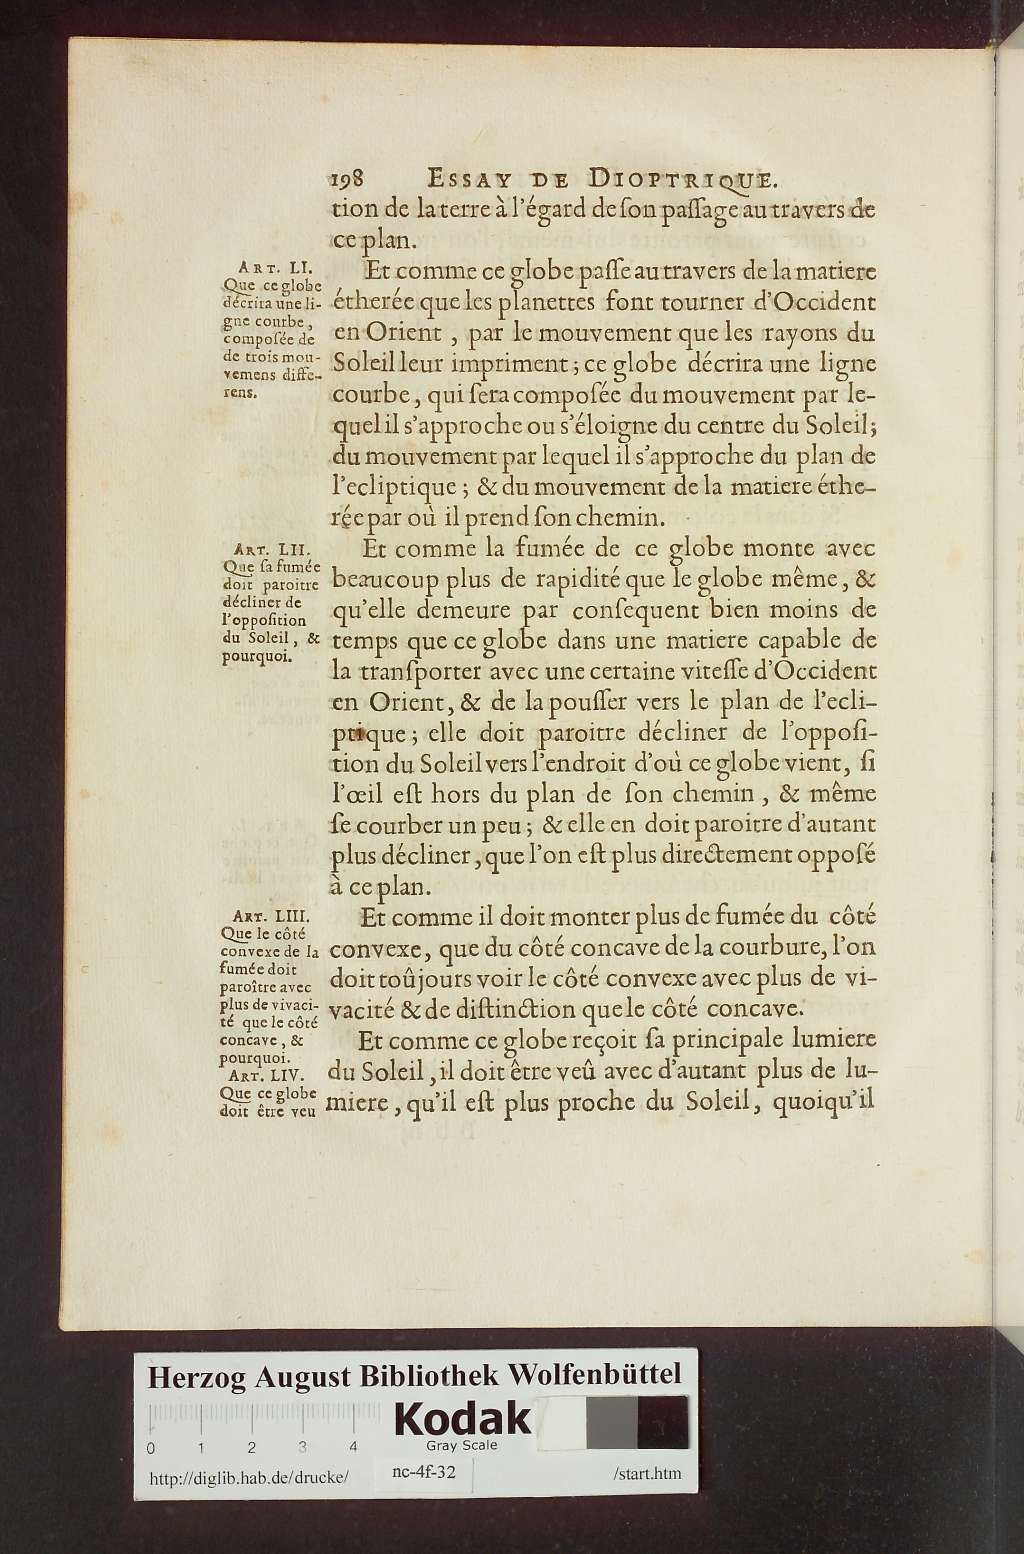 198 ESSAY DE DIOPTRIQUE.
tion de la terre à l'égard de ſon paſſage au travers de
ce plan.
ART. LI.
Que ce globe
décrira une li-
gne courbe,
compoſée de
de trois mou-
vemens diffe-
rens.
Et comme ce globe paſſe au travers de la matiere
étherée que les planettes font tourner d'Occident
en Orient , par le mouvement que les rayons du
Soleil leur impriment ; ce globe décrira une ligne
courbe, qui ſera compoſée du mouvement par le-
quel il s'approche ou s'éloigne du centre du Soleil;
du mouvement par lequel il s'approche du plan de
l'ecliptique ; & du mouvement de la matiere éthe-
rée par où il prend ſon chemin.
ART. LII.
Que ſa fumée
doit paroitre
décliner de
l'oppoſition
du Soleil, &
pourquoi.
Et comme la fumée de ce globe monte avec
beaucoup plus de rapidité que le globe même, &
qu'elle demeure par conſequent bien moins de
temps que ce globe dans une matiere capable de
la tranſporter avec une certaine viteſſe d'Occident
en Orient, & de la pouſſer vers le plan de l'ecli-
ptique ; elle doit paroitre décliner de l'oppoſi-
tion du Soleil vers l'endroit d'où ce globe vient, ſi
l'œil eſt hors du plan de ſon chemin , & même
ſe courber un peu ; & elle en doit paroitre d'autant
plus décliner, que l'on eſt plus directement oppoſé
à ce plan.
ART. LIII.
Que le côté
convexe de la
fumée doit
paroître avec
plus de vivaci-
té que le côté
concave, &
pourquoi.
Et comme il doit monter plus de fumée du côté
convexe, que du côté concave de la courbure, l'on
doit toûjours voir le côté convexe avec plus de vi-
vacité & de diſtinction que le côté concave.
ART. LIV.
Que ce globe
doit être veu
Et comme ce globe reçoit ſa principale lumiere
du Soleil, il doit être veû avec d'autant plus de lu-
miere, qu'il eſt plus proche du Soleil, quoiqu'il
Herzog August Bibliothek Wolfenbüttel
Kodak
Gray Scale
0 1 2 3 4
http://diglib.hab.de/drucke/ nc-4f-32 /start.htm